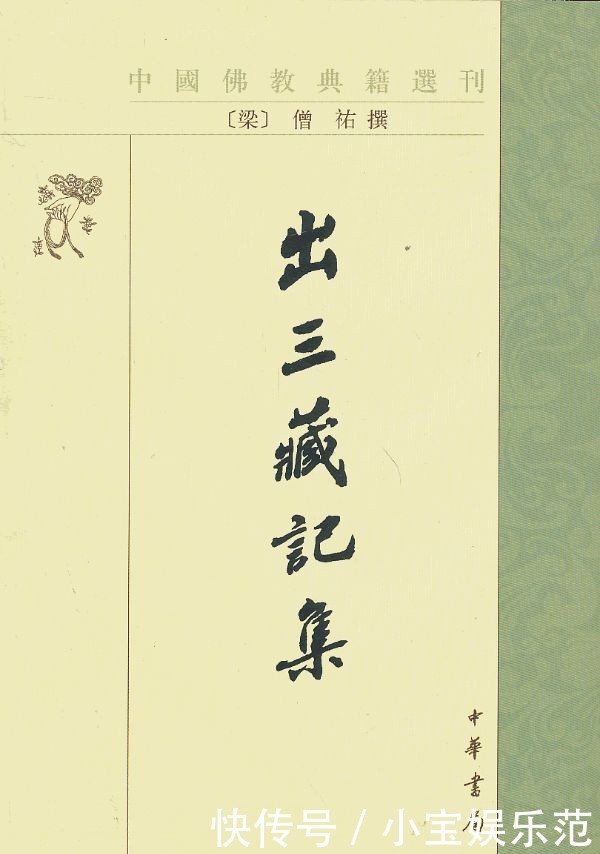 中國佛教典籍選刊
〔梁〕 僧 祐 撰
出三藏記集
中華書局
快传号 / 小宝娱乐范